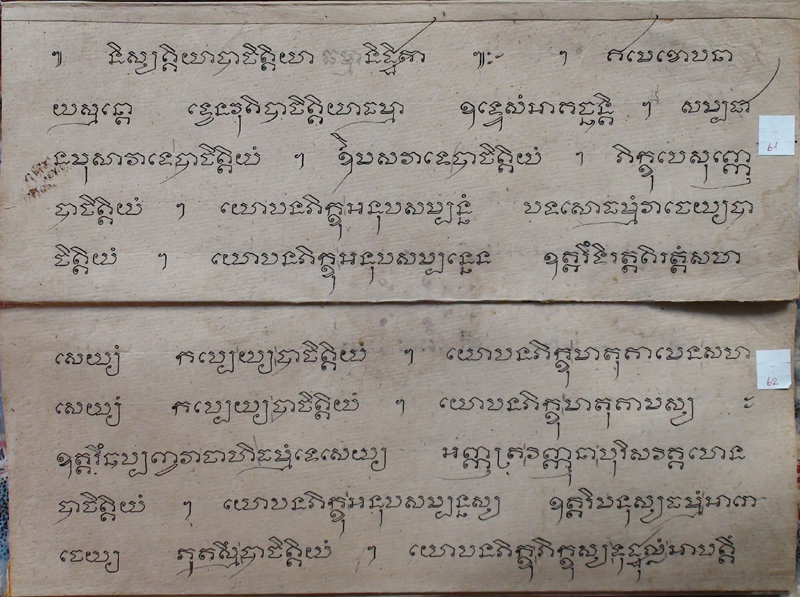 ៚ និស្សគ្គិយាបាចិត្តិយា ធម្មានិដ្ឋិតា ៚ះ ៗ ឥមេខោបនា
យស្មន្តោ ទ្វេនវុតិបាចិត្តិយាធម្មា ឧទ្ទេសំអាគច្ឆន្តិ ៗ សម្បជា
61
នមុសាវាទេបាចិត្តិយំ ៗ ឱមសវាទេបាចិត្តិយំ ៗ ភិក្ខុបេសុញ្ញេ
បាចិត្តិយំ ៗ យោបនភិក្ខុអនុបសម្បន្នំ បទសោធម្មំវាចេយ្យបា
ចិត្តិយំ ៗ យោបនភិក្ខុអនុបសម្បន្នេន ឧត្តរិំទិរត្តតិរត្តំសហ
សេយ្យំ កប្បេយ្យបាចិត្តិយំ ៗ យោបនភិក្ខុមាតុគាមេនសហ
62
សេយ្យំ កប្បេយ្យបាចិត្តិយំ ៗ យោបនភិក្ខុមាតុគាមស្ស ះ
ឧត្តរិំឆប្បញ្ចវាចាហិធម្មំទេសេយ្យ អញ្ញត្រវិញ្ញុនាបុរិសវិគ្គហេន
បាចិត្តិយំ ៗ យោបនភិក្ខុអនុបសម្បន្នស្ស ឧត្តរិមនុស្សធម្មំអារោ
ចេយ្យ ភូតស្មិំបាចិត្តិយំ ៗ យោបនភិក្ខុភិក្ខុស្សទុដ្ឋុល្លំអាបត្តិំ